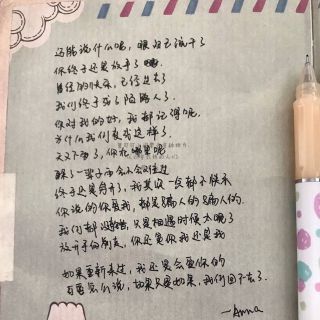 还能说什么呢，眼泪已流干了
你终于还是放手了
曾经的快乐，已经过去了
我们终于成了陌路人了.
你对我的好，我都记得呢.
为什么我们变成这样了.
又下雨了，你在哪里呢
醉了一辈子而会不会难过
终于还是分开了，我其实一点都不快乐
你说的你爱我，都是骗人的骗人的.
我们都没错，只是相遇时候太晚了
放开手的朋友，你还是你我还是我
如果重新来过，我还是会爱你的
可要怎么说，如果只是如果，我们回不去了.
—Anna